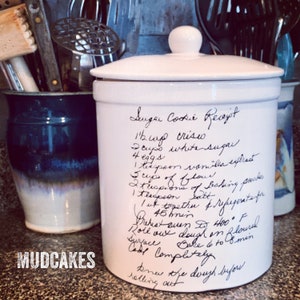 Sugar Cookie Receipt
1 cup crisco
2 cups white sugar
4 eggs
1 teaspoon vanilla extract
5 cups of flour
2 teaspoons of baking powder
1 teaspoon salt
together & refrigerate for
45 min
oven to 400° F
Roll out dough on floured
surface Bake 6 to 8 min
Cool Completely
the dough before
rolling out
MUDCAKES